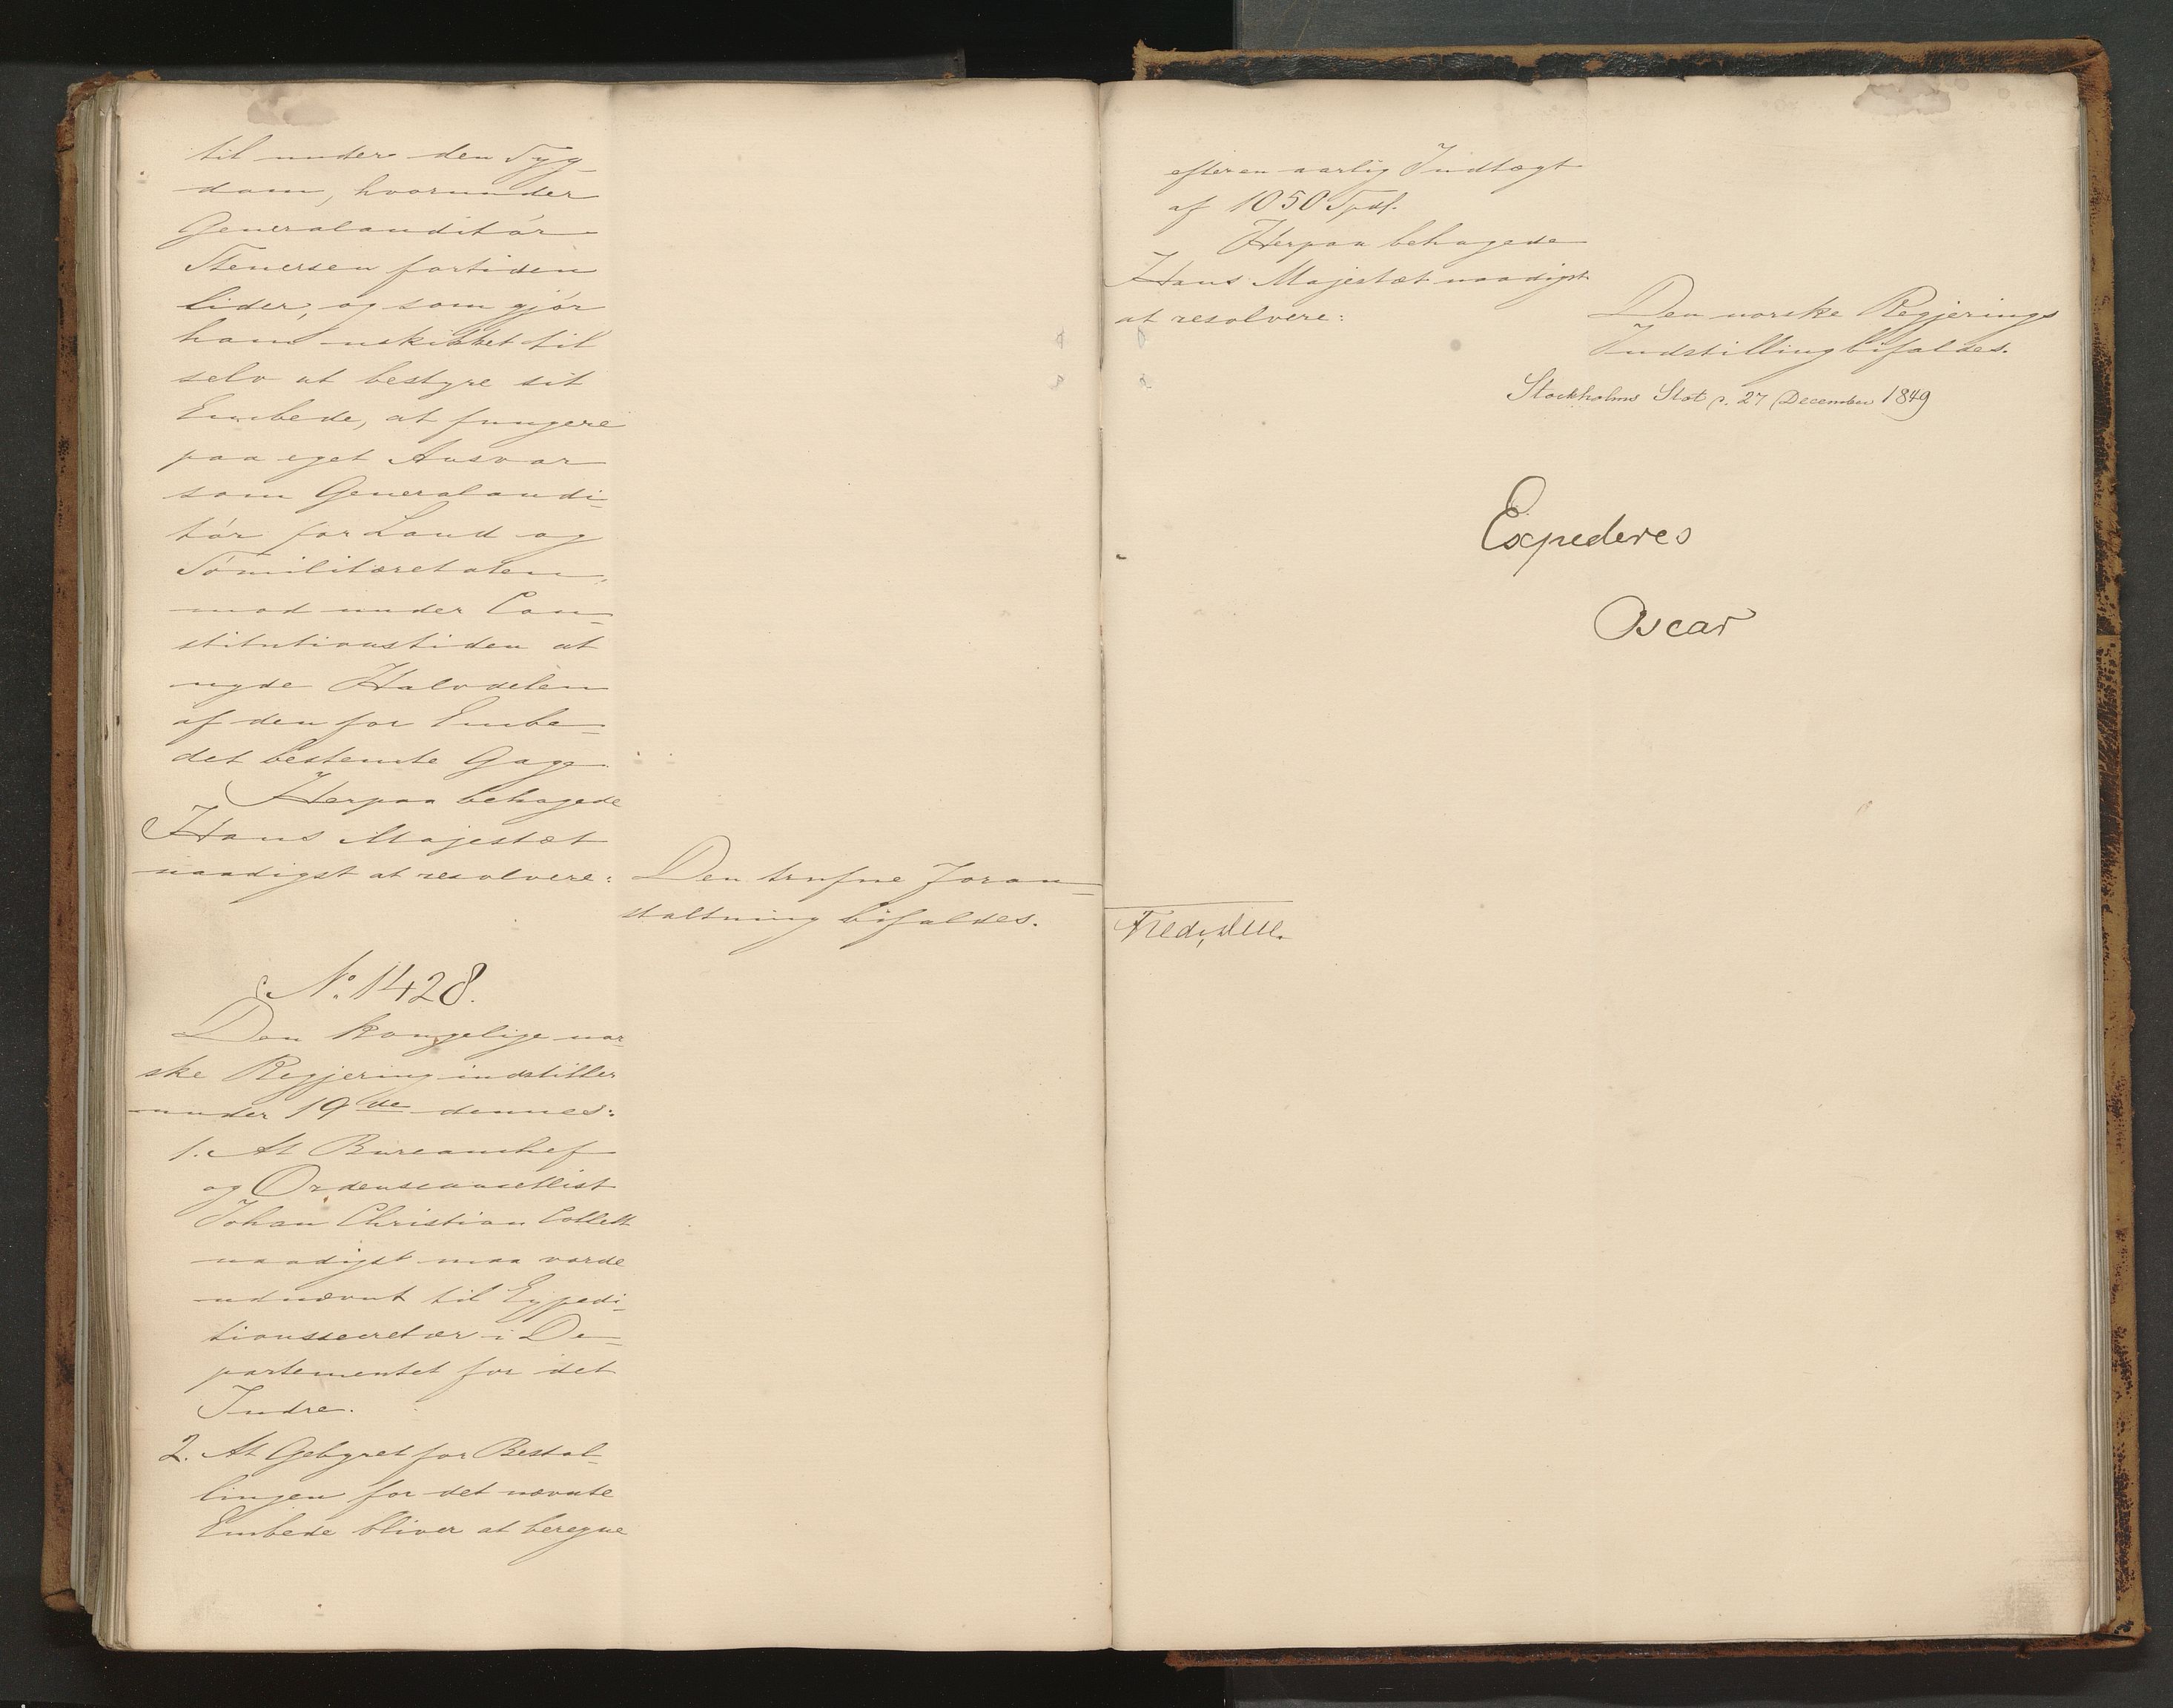 til under den Syg-
dom, hvorunder
Generalauditør
Stenersen fortiden
lider, og som gjør
ham uskikket til
selv at bestyre sit
Embede, at fungere
paa eget Ansvar
som Generalaudi-
tør for Land og
Sømilitæretaten,
mod under Con-
stitutionstiden at
nyde Halvdelen
af den for Embe-
det bestemte Gage.
Herpaa behagede
Hans Majestæt
naadigst at resolvere:
Den trufne Foran-
staltning bifaldes.
No. 1428.
Den kongelige nor-
ske Regjering indstiller
under 19de dennes:
1. At Bureauchef
og Ordenscancellist
Johan Christian Collett
naadigst maa vorde
udnævnt til Expedi-
tionssecretær i De-
partementet for det
Indre.
2. At Gebyret for Bestal-
lingen for det nævnte
Embede bliver at beregne
efter en aarlig Indtægt
af 1050 Spd.
Herpaa behagede
Hans Majestæt naadigst
at resolvere:
Den norske Regjerings
Indstilling bifaldes.
Stockholms Slot d. 27 December 1849
Expederes
Oscar